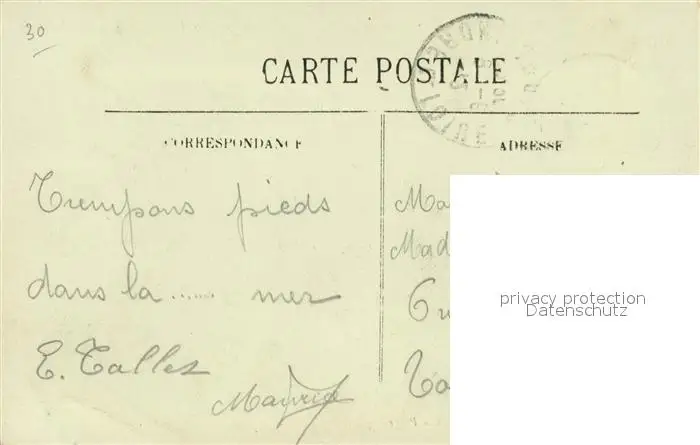 30
CARTE POSTALE
CORRESPONDANCE
ADRESSE
Trempons pieds
dans la ...... mer
E. Talles
Maurice
Ma
Mad
privacy protection
Datenschutz